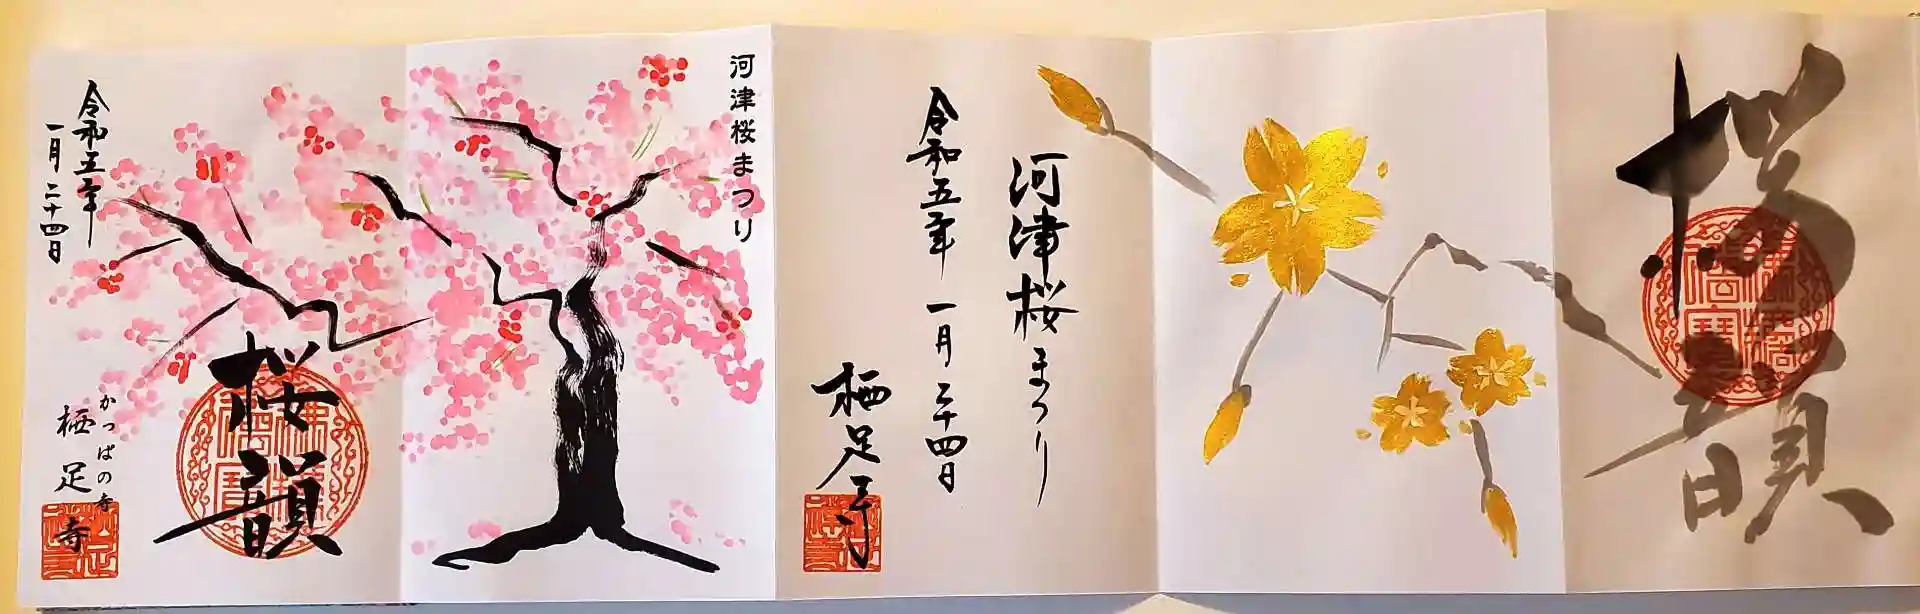 河津桜まつり
桜韻
令和五年
一月二十四日
かっぱの寺
栖足寺
桜韻
河津桜まつり
令和五年 一月二十四日
栖足寺